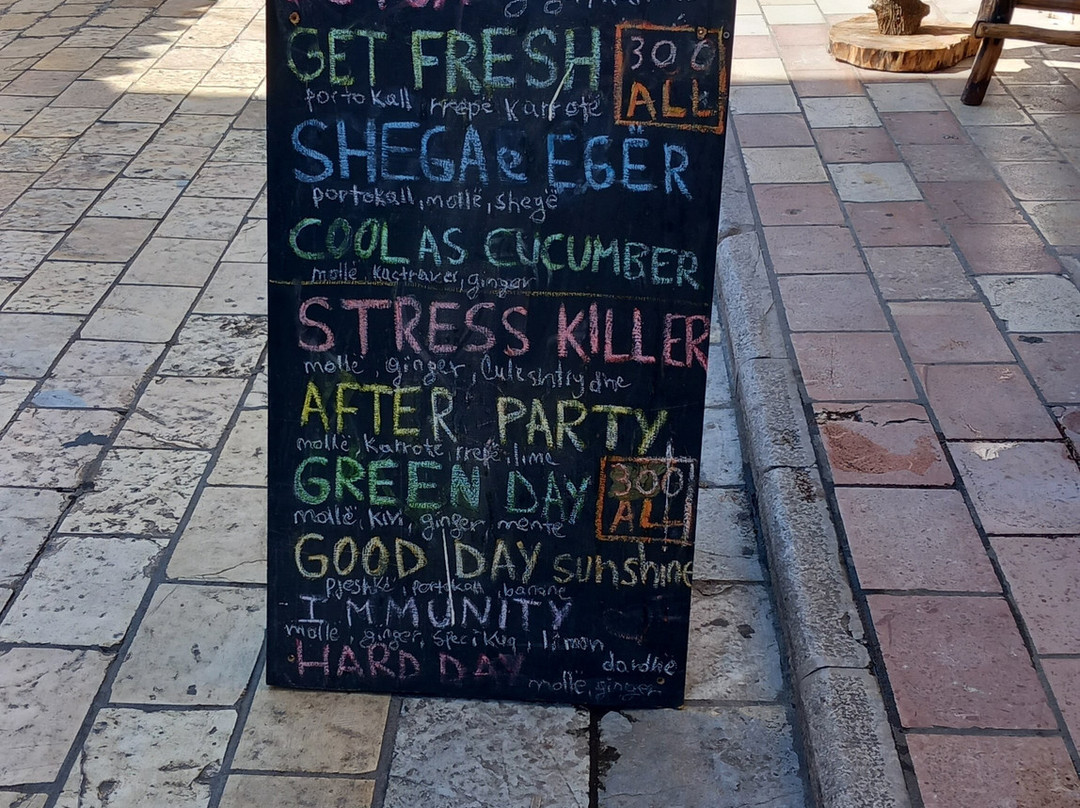 GET FRESH
300
ALL
portokall rrepe karrotë
SHEGA e EGËR
portokall, mollë, shegë
COOL AS CUCUMBER
mollë, kastravec, ginger
STRESS KILLER
mollë, ginger, Luleshtrydhe
AFTER PARTY
mollë, karrote, rrepë, lime
GREEN DAY
300
ALL
mollë, kivi, ginger, mente
GOOD DAY sunshine
pjeshkë, portokall, banane
I'MMUNITY
mollë, ginger, speci kuq, limon
HARD DAY
dardhë
mollë, ginger